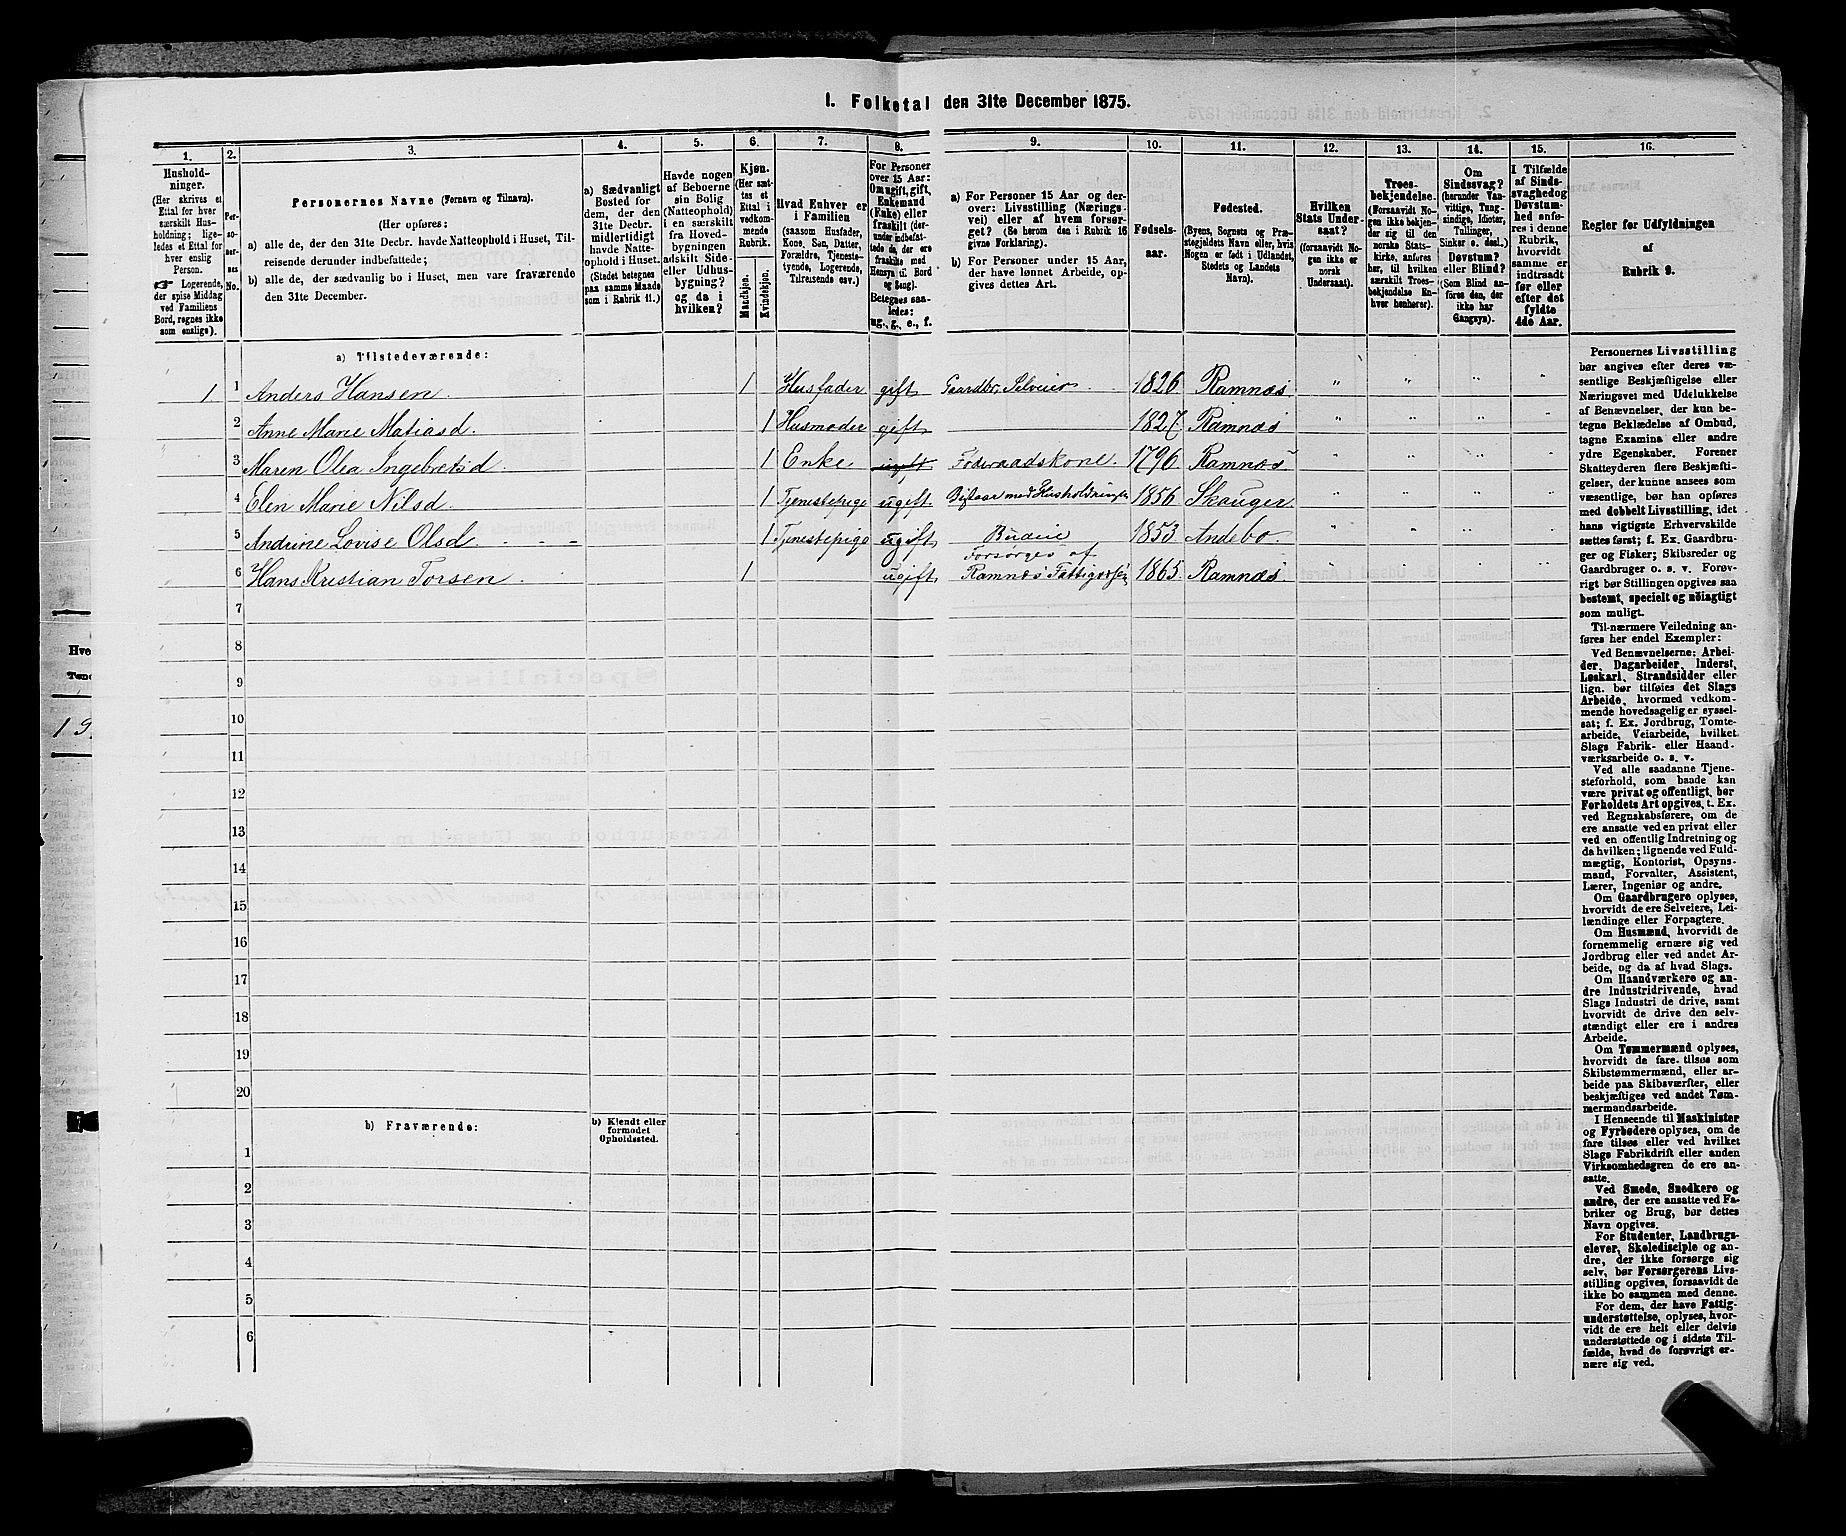 1. Folketal den 31te December 1875.
1. 2. 3. 4. 5. 6. 7. 8. 9. 10. 11. 12. 13. 14. 15. 16.
Hushold-
ninger.
(Her skrives et
Ettal for hver
særskilt Hus-
holdning; lige-
ledes et Ettal for
hver enslig
Person.
Logerende,
der spise Middag
ved Familiens
Bord, regnes ikke
som enslige).
Per-
so-
ner-
nes
No.
Personernes Navne (Fornavn og Tilnavn).
(Her opføres:
a) alle de, der den 31te Decbr. havde Natteophold i Huset, Til-
reisende derunder indbefattede;
b) alle de, der sædvanlig bo i Huset, men vare fraværende
den 31te December.
a) Sædvanligt
Bosted for
dem, der den
31te Decbr.
midlertidigt
havde Natte-
ophold i Huset.
(Stedet betegnes
paa samme Maade
som i Rubrik 11.)
Havde nogen
af Beboerne
sin Bolig
(Natteophold)
i en særskilt
fra Hoved-
bygningen
adskilt Side-
eller Udhus-
bygning?
og da i
hvilken?
Kjøn.
(Her sæt-
tes et
Ettal i
vedkom-
mende
Rubrik.
Mandkjøn.
Kvindekjøn.
Hvad Enhver er
i Familien
(saasom Husfader,
Kone, Søn, Datter,
Forældre, Tjeneste-
tyende, Logerende,
Tilreisende osv.)
For Personer
over 15 Aar:
Om ugift, gift,
Enkemand
(Enke) eller
fraskilt (der-
under indbefat-
tede de, der ere
fraskilte med
Hensyn til Bord
og Seng).
Betegnes saa-
ledes:
ug., g., e., f.
a) For Personer 15 Aar og der-
over: Livsstilling (Nærings-
vei) eller af hvem forsør-
get? (Se herom den i Rubrik 16
givne Forklaring).
b) For Personer under 15 Aar,
der have lønnet Arbeide, op-
gives dettes Art.
Fødsels-
aar.
Fødested.
(Byens, Sognets og Præ-
stegjeldets Navn eller, hvis
Nogen er født i Udlandet,
Stedets og Landets
Navn).
Hvilken
Stats Under-
saat?
(forsaavidt No-
gen ikke er
norsk
Undersaat).
Troes-
bekjendelse.
(Forsaavidt No-
gen ikke bekjen-
der sig til den
norske Stats-
kirke, anføres
her, til hvilken
særskilt Troes-
bekjendelse En-
hver henhører).
Om
Sindssvag?
(herunder Van-
vittige, Tung-
sindige, Idioter,
Tullinger,
Sinker o. desl.)
Døvstum?
eller Blind?
(Som Blind an-
føres den, der
ikke har
Gangsyn).
I Tilfælde
af Sinds-
svaghed og
Døvstum-
hed anfø-
res i denne
Rubrik,
hvorvidt
samme er
indtraadt
før eller
efter det
fyldte
4de Aar.
Regler for Udfyldningen
af
Rubrik 9.
a) Tilstedeværende:
1 1 Anders Hansen 1 Husfader gift Gaardbr. Selveier 1826 Ramnæs " " " "
2 Anne Marie Matiasd 1 Husmoder gift 1827 Ramnæs
3 Maren Olea Ingebretsd 1 Enke ugift Føderaadskone 1796 Ramnæs
4 Elen Marie Nilsd 1 Tjenestepige ugift Bistaar med Husholdningen 1856 Skauger
5 Andrine Lovise Olsd 1 Tjenestepige ugift Budeie 1853 Andebo
6 Hans Kristian Torsen 1 ugift Forsørges af
Ramnæs Fattigvæsen 1865 Ramnæs
7
8
9
10
11
12
13
14
15
16
17
18
19
20
b) Fraværende:
b) Kjendt eller
formodet
Opholdssted.
1
2
3
4
5
6
Personernes Livsstilling
bør angives efter deres væ-
sentlige Beskjæftigelse eller
Næringsvei med Udelukkelse
af Benævnelser, der kun be-
tegne Beklædelse af Ombud,
tagne Examina eller andre
ydre Egenskaber. Forener
Skatteyderen flere Beskjæfti-
gelser, der kunne ansees som
væsentlige, bør han opføres
med dobbelt Livsstilling, idet
hans vigtigste Erhvervskilde
sættes først; f. Ex. Gaardbru-
ger og Fisker; Skibsreder og
Gaardbruger o. s. v. Forøv-
rigt bør Stillingen opgives saa
bestemt, specielt og nøiagtigt
som muligt.
Til nærmere Veiledning an-
føres her endel Exempler:
Ved Benævnelserne: Arbei-
der, Dagarbeider, Inderst,
Løskarl, Strandsidder eller
lign. bør tilføies det Slags
Arbeide, hvormed vedkom-
mende hovedsagelig er syssel-
sat; f. Ex. Jordbrug, Tomte-
arbeide, Veiarbeide, hvilket
Slags Fabrik- eller Haand-
værksarbeide o. s. v.
Ved alle saadanne Tjene-
steforhold, som baade kan
være privat og offentligt, bør
Forholdets Art opgives, t. Ex.
ved Regnskabsførere, om de
ere ansatte ved en privat eller
ved en offentlig Indretning og
da hvilken; lignende ved Fuld-
mægtig, Kontorist, Opsyns-
mand, Forvalter, Assistent,
Lærer, Ingeniør og andre.
Om Gaardbrugere oplyses,
hvorvidt de ere Selveiere, Lei-
lændinge eller Forpagtere.
Om Husmænd, hvorvidt de
fornemmelig ernære sig ved
Jordbrug eller ved andet Ar-
beide, og da af hvad Slags.
Om Haandværkere og an-
dre Industridrivende, hvad
Slags Industri de drive, samt
hvorvidt de drive den selv-
stændigt eller ere i andres
Arbeide.
Om Tømmermænd oplyses,
hvorvidt de fare tilsøs som
Skibstømmermænd, eller ar-
beide paa Skibsværfter, eller
beskjæftiges ved andet Tøm-
mermandsarbeide.
I Henseende til Maskinister
og Fyrbødere oplyses, om de
fare tilsøs eller ved hvilket
Slags Fabrikdrift eller anden
Virksomhedsgren de ere an-
satte.
Ved Smede, Snedkere og
andre, der ere ansatte ved Fa-
briker og Brug, bør dettes
Navn opgives.
For Studenter, Landbrugs-
elever, Skoledisciple og an-
dre, der ikke forsørge sig
selv, bør Forsørgerens Livs-
stilling opgives, forsaavidt de
ikke bo sammen med denne.
For dem, der have Fattig-
understøttelse, oplyses, hvor-
vidt de ere helt eller delvis
understøttede og i sidste Til-
fælde, hvad de forøvrigt er-
nære sig ved.